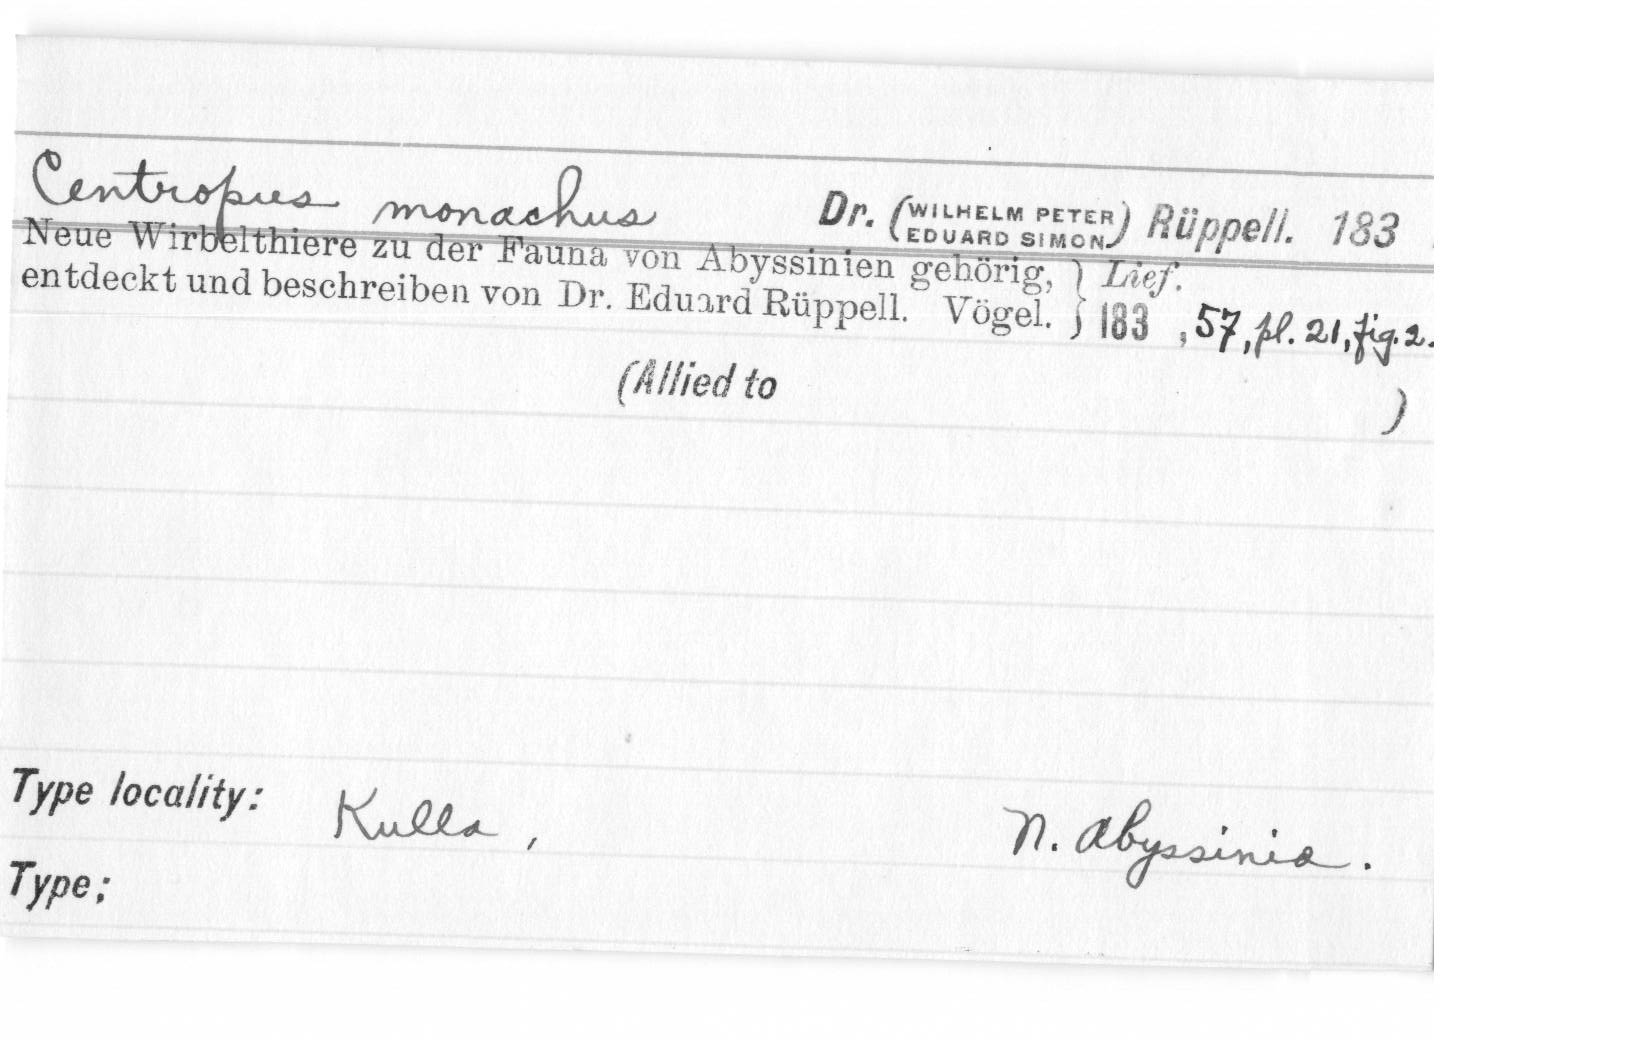 Centropus monachus Dr. (WILHELM PETER EDUARD SIMON) Rüppell. 183
Neue Wirbelthiere zu der Fauna von Abyssinien gehörig, } Lief.
entdeckt und beschreiben von Dr. Eduard Rüppell. Vögel. } 183 , 57, pl. 21, fig. 2.
(Allied to )
Type locality: Kulla , N. Abyssinia.
Type: